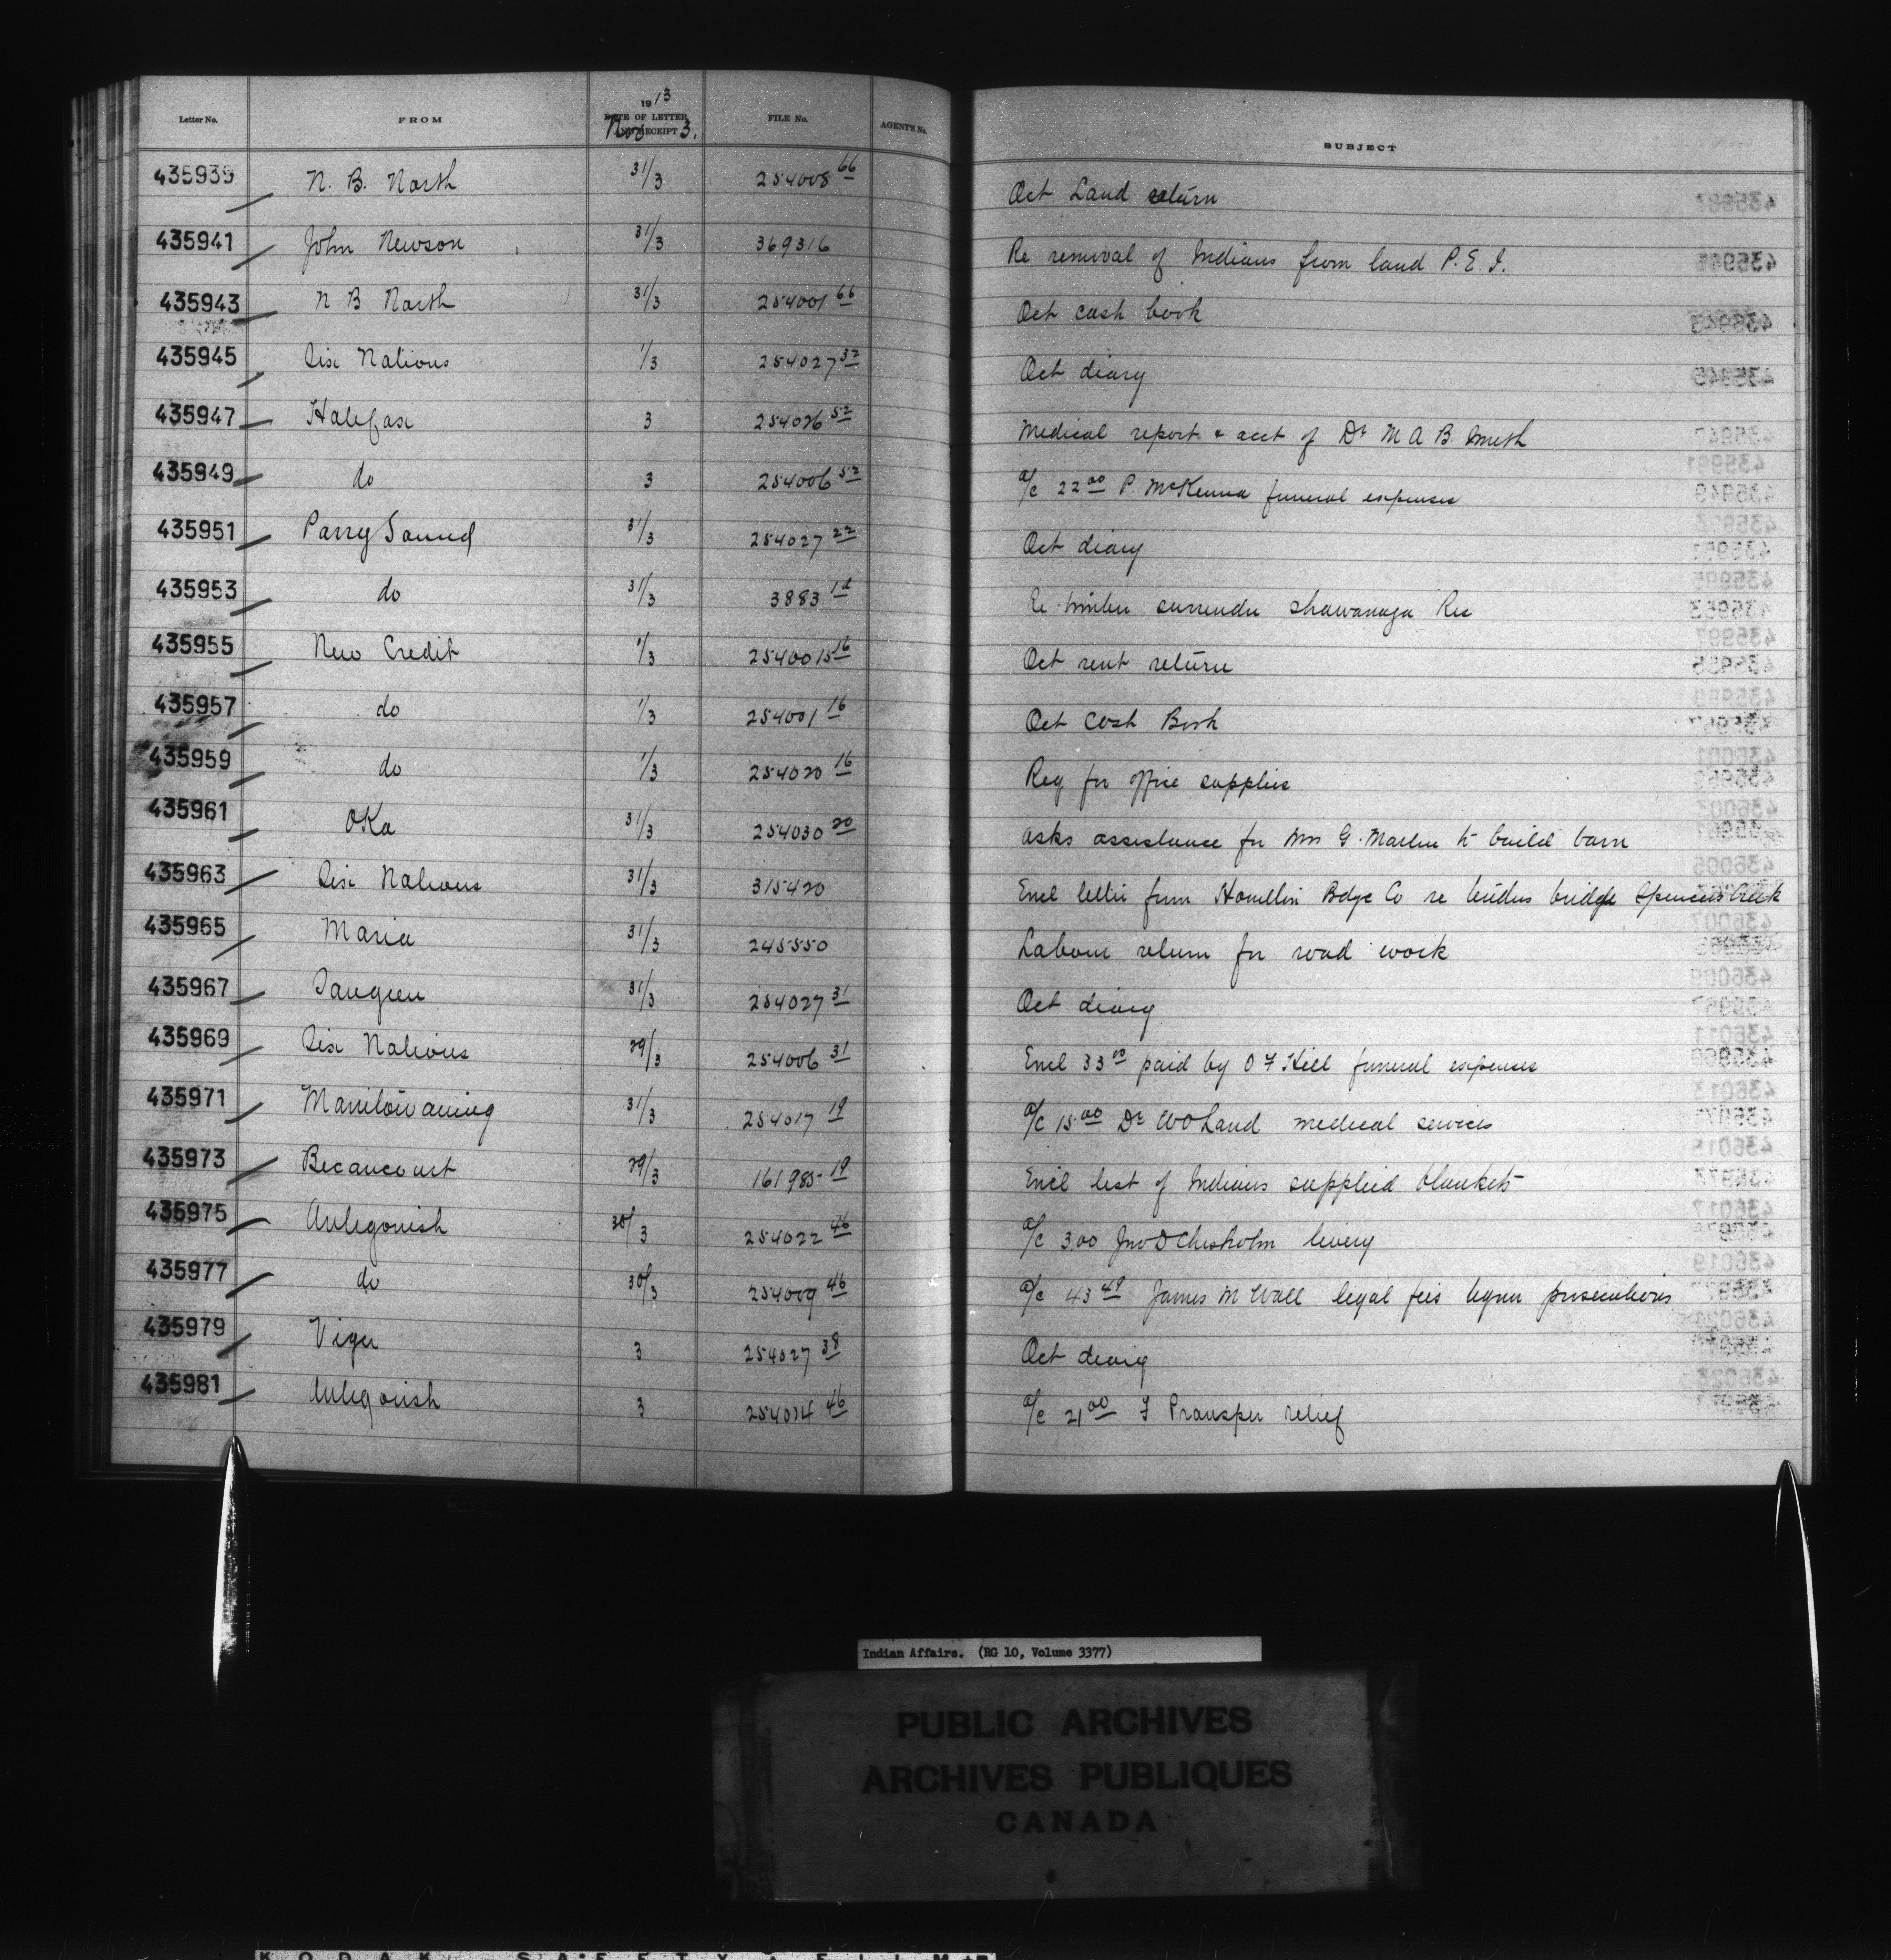 Letter No. FROM 1913 DATE OF LETTER AND RECEIPT Nov 3. FILE No. AGENT'S No. SUBJECT
435939 N. B. North 31/3 254008 66 Oct Land return
435941 John Newson 31/3 369316 Re removal of Indians from land P. E. I.
435943 N B North 31/3 254001 66 Oct cash book
435945 Six Nations 1/3 254027 32 Oct diary
435947 Halifax 3 254026 52 Medical report & acct of Dr M A B Smith
435949 do 3 254006 52 a/c 22 00 P. McKenna funeral expenses
435951 Parry Sound 31/3 254027 22 Oct diary
435953 do 31/3 3883 Re timber surrender Shawanaga Res
435955 New Credit 1/3 16 Oct rent return
435957 do 1/3 254001 16 Oct Cash Book
435959 do 1/3 254020 16 Req for office supplies
435961 Oka 31/3 254030 20 asks assistance for Mrs G. Martin to build barn
435963 Six Nations 31/3 315420 Encl letter from Hamilton Bdge Co re tenders bridge Spencers Creek
435965 Maria 31/3 245550 Labour return for road work
435967 Saugeen 31/3 254027 31 Oct diary
435969 Six Nations 29/3 254006 31 Encl 33 00 paid by O F Hill funeral expenses
435971 Manitowaning 31/3 254017 19 a/c 15 00 Dr W O Land medical services
435973 Becancourt 29/3 161985 - 19 Encl list of Indians supplied blankets
435975 Antigonish 30/3 254022 46 a/c 3.00 Jno D Chisholm livery
435977 do 30/3 254009 46 a/c 43 49 James M Wall legal fees liquor prosecutions
435979 Viger 3 254027 38 Oct diary
435981 Antigonish 3 254014 46 a/c 21 00 F Prosper relief
Indian Affairs. (RG 10, Volume 3377)
PUBLIC ARCHIVES
ARCHIVES PUBLIQUES
CANADA
KODAK SAFETY FILM